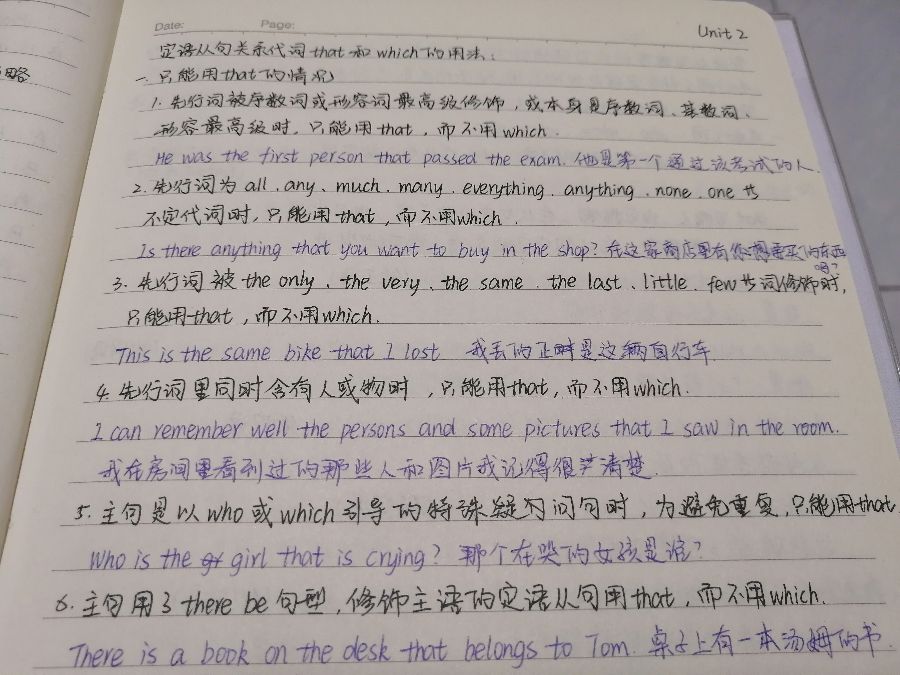 Date:
Page:
Unit 2
略
定语从句关系代词that和which的用法：
一、只能用that的情况
1. 先行词被序数词或形容词最高级修饰，或本身是序数词、基数词、
形容最高级时，只能用that，而不用which.
He was the first person that passed the exam. 他是第一个通过该考试的人.
2. 先行词为all、any、much、many、everything、anything、none、one等
不定代词时，只能用that，而不用which.
Is there anything that you want to buy in the shop? 在这家商店里有你想要买的东西
吗？
3. 先行词被the only、the very、the same、the last、little、few等词修饰时，
只能用that，而不用which.
This is the same bike that I lost 我丢的正时是这辆自行车.
4. 先行词里同时含有人或物时，只能用that，而不用which.
I can remember well the persons and some pictures that I saw in the room.
我在房间里看到过的那些人和图片我记得很清楚.
5. 主句是以who或which引导的特殊疑问句时，为避免重复，只能用that
Who is the girl that is crying? 那个在哭的女孩是谁？
6. 主句用了there be句型，修饰主语的定语从句用that，而不用which.
There is a book on the desk that belongs to Tom. 桌子上有一本汤姆的书.